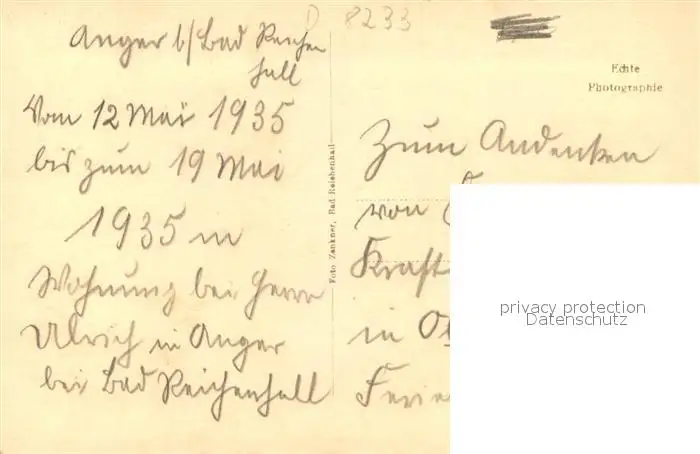 8233
Anger b/Bad Reichen
hall
Vom 12 Mai 1935
bis zum 19 Mai
1935 in
Wohnung bei Herrn
Ulrich in Anger
bei Bad Reichenhall
Foto Zankner, Bad Reichenhall
Echte
Photographie
Zum Andenken
von
Kraft
in
Ferie
privacy protection
Datenschutz